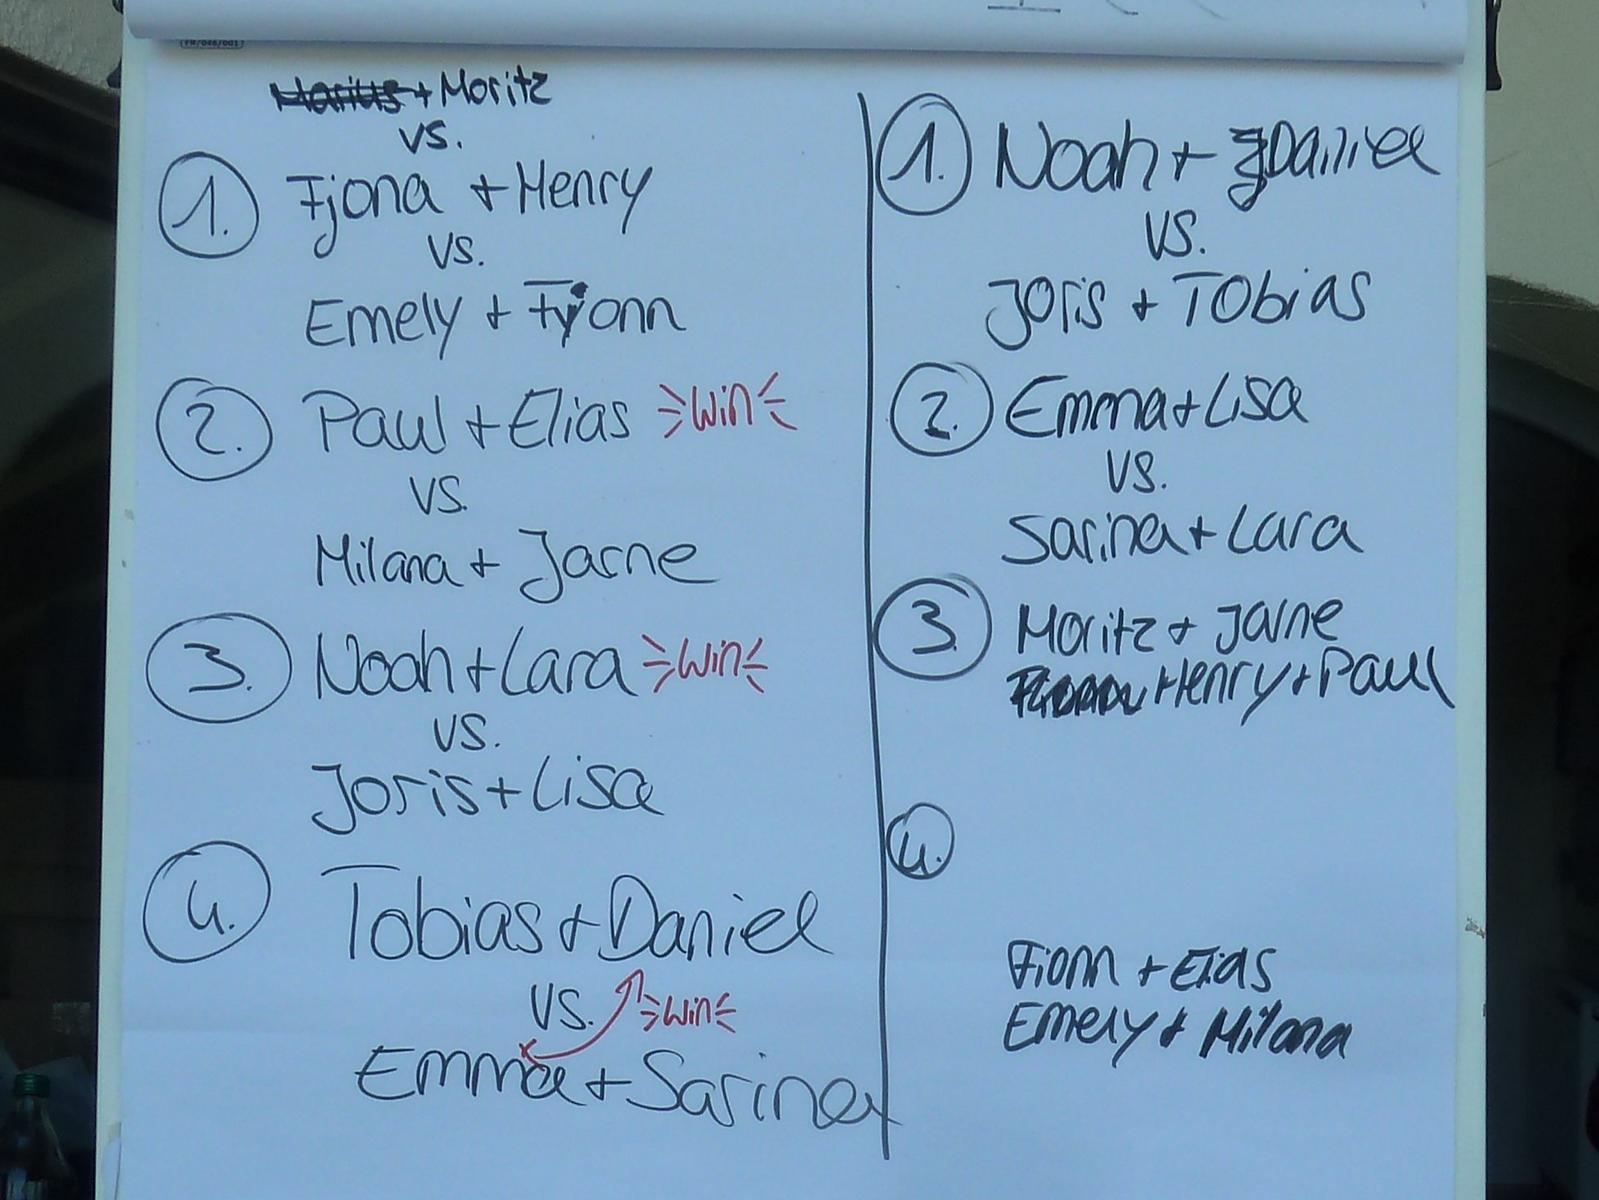 + Moritz
vs.
1. Fjona + Henry
vs.
Emely + Fjonn
2. Paul + Elias win
vs.
Milana + Jarne
3. Noah + Lara win
vs.
Joris + Lisa
4. Tobias + Daniel
vs. win
Emma + Sarina
1. Noah + Daniel
vs.
Joris + Tobias
2. Emma + Lisa
vs.
Sarina + Lara
3. Moritz + Jarne
Henry + Paul
4.
Fionn + Elias
Emely + Milana